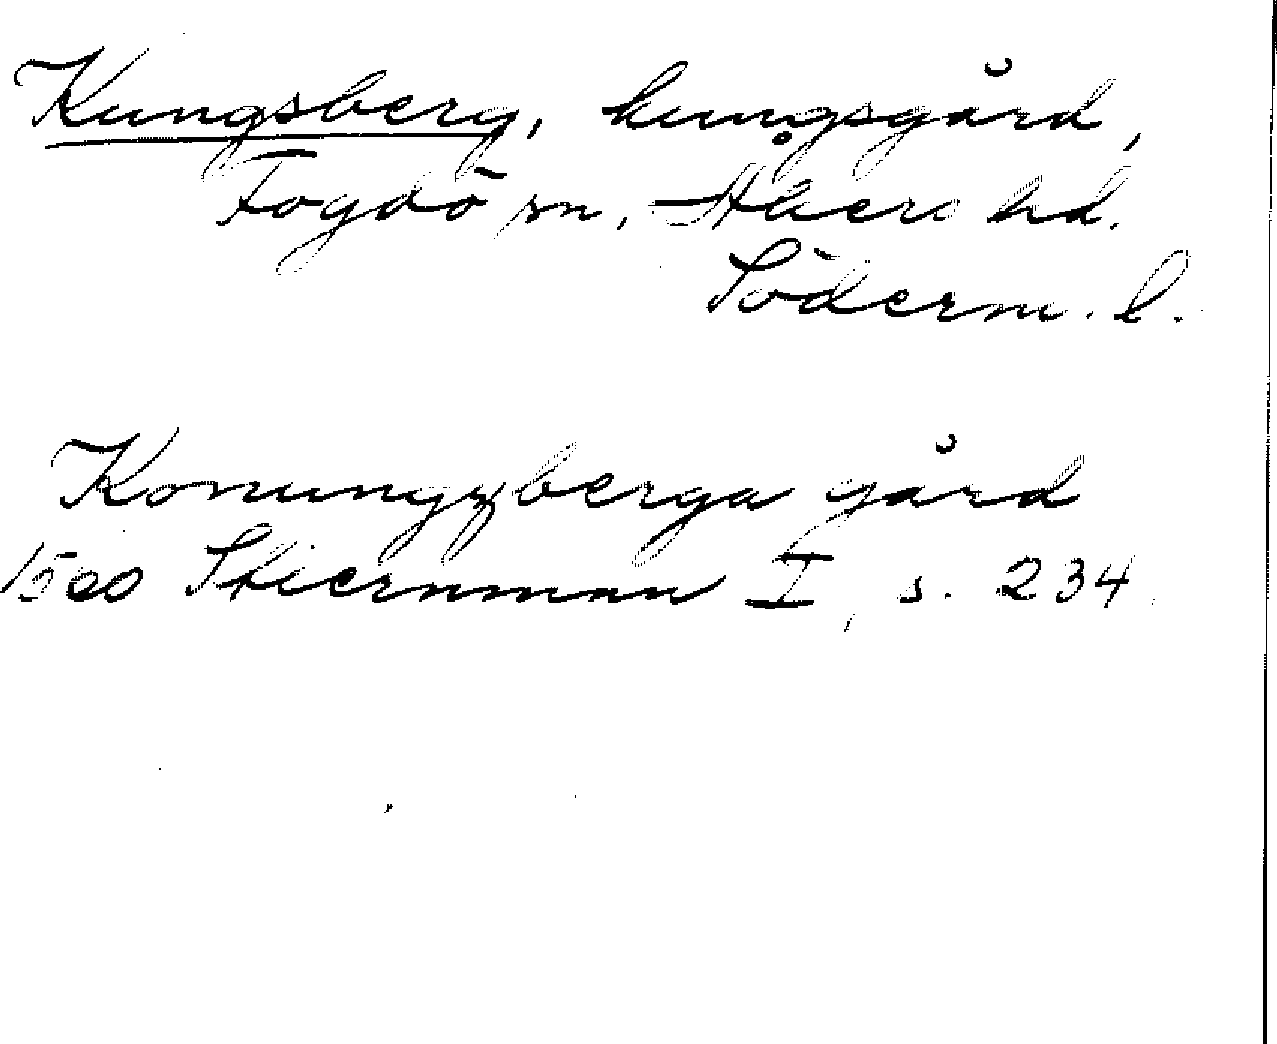 Kungsberg, kungsgård,
Fogdö sn, Åkers hd.
Söderm. l.
Konungzberga gård
1560 Stiernman I, s. 234